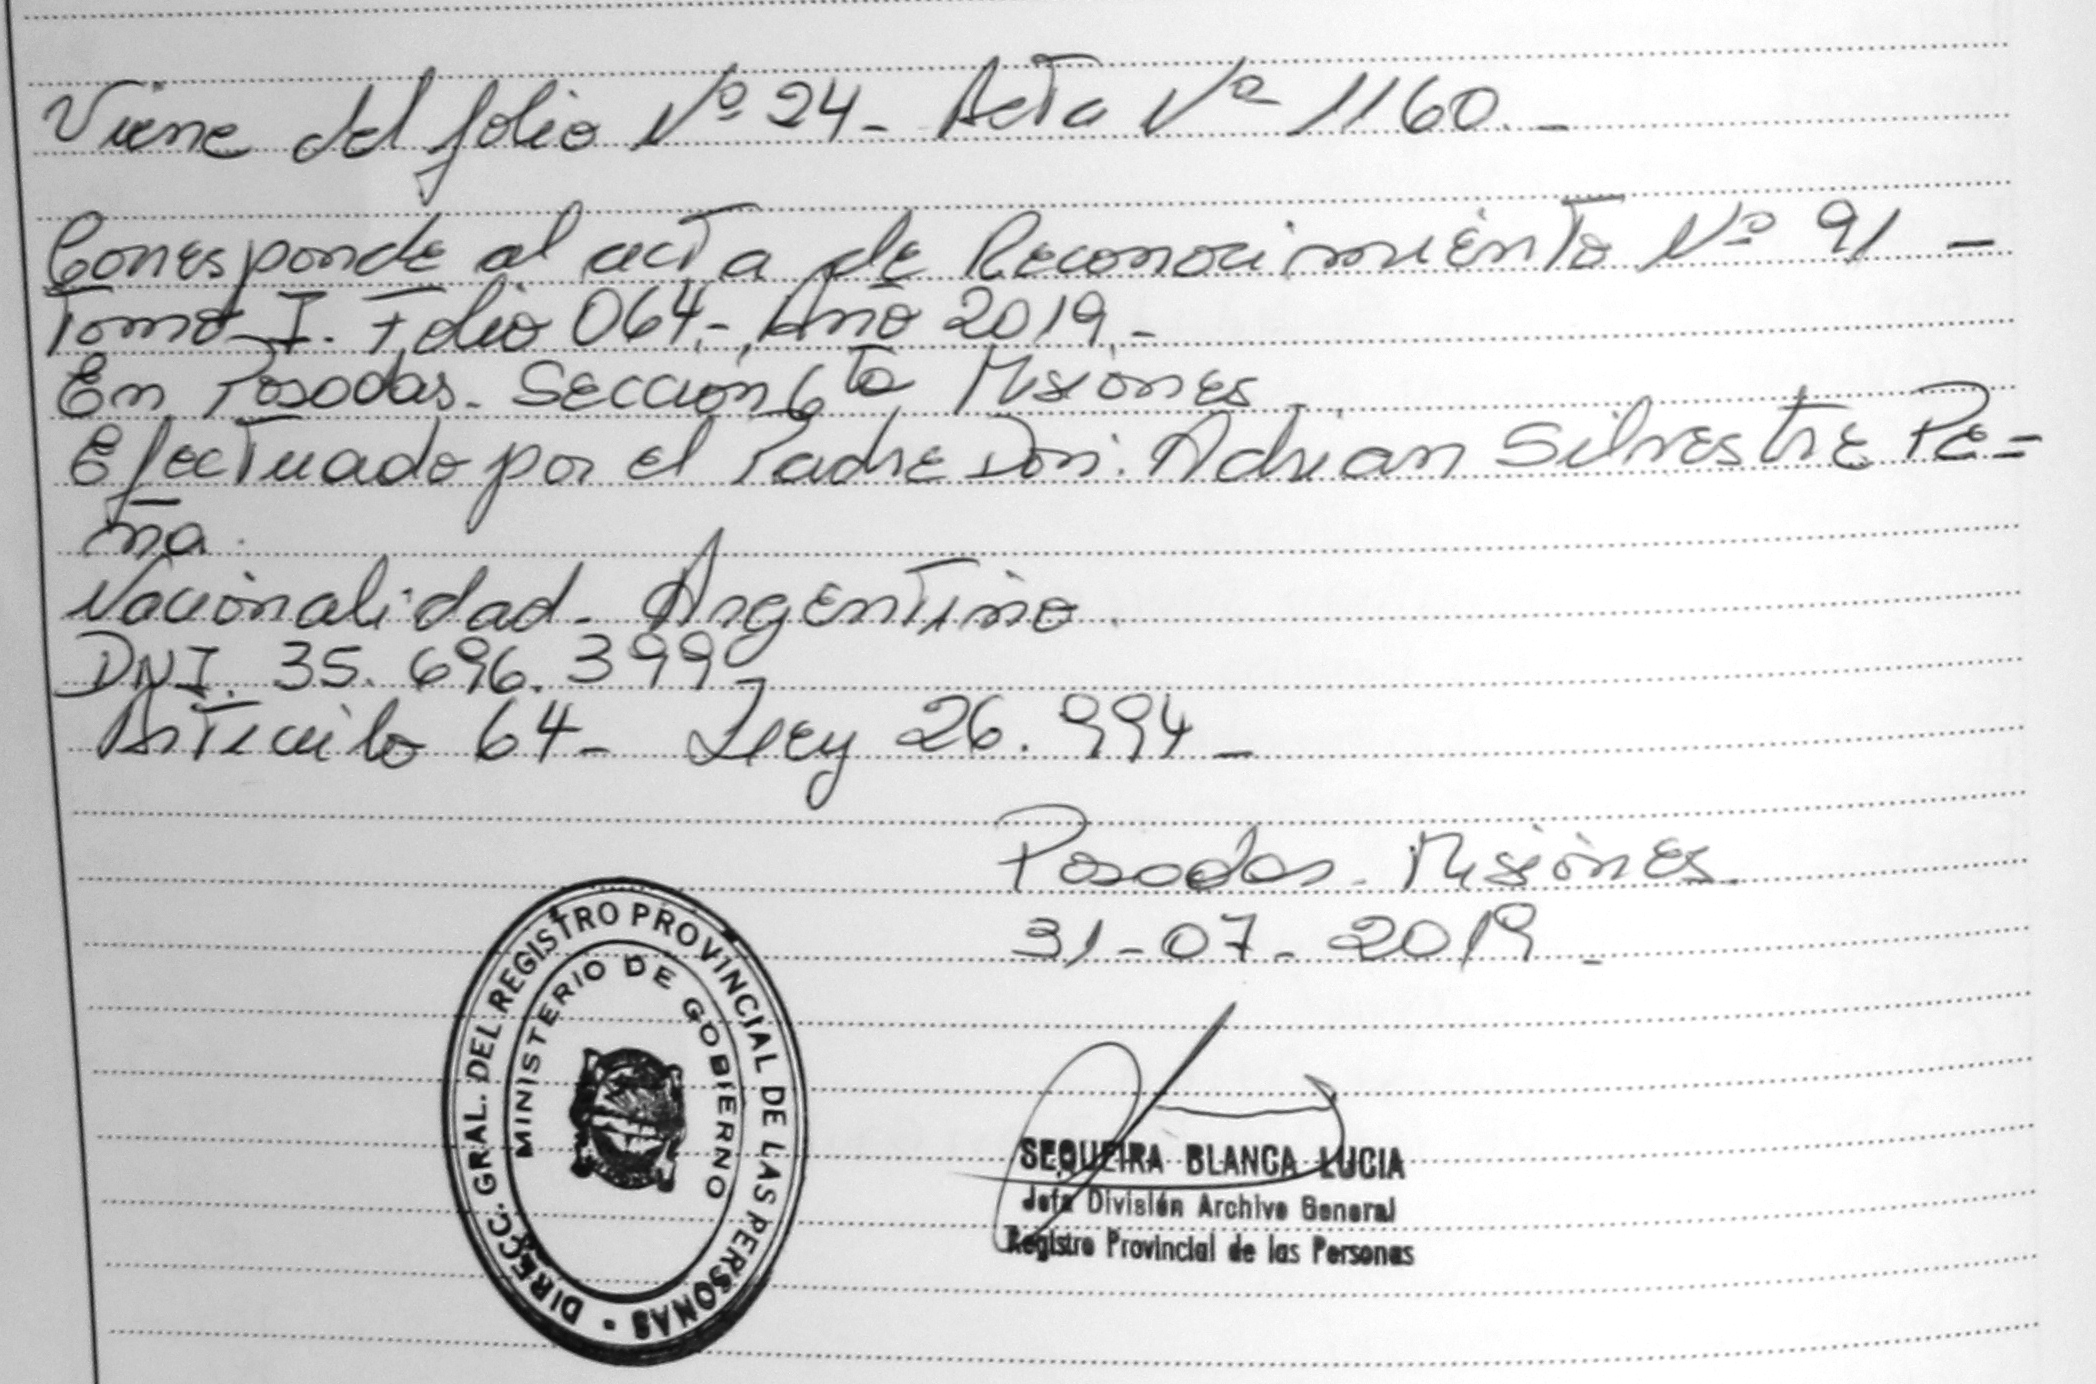 Viene del folio Nº 24 - Acta Nº 1160. -
Corresponde al acta de Reconocimiento Nº 91 -
Tomo I. Folio 064.- Año 2019.-
En Posadas. Sección 6ta Misiones.
Efectuado por el Padre Don: Adrian Silvestre Pe=
ña.
Nacionalidad - Argentino.
DNI. 35.696.399
Articulo 64 - Ley 26.994 -
Posadas. Misiones.
31-07-2019.-
DIRECC. GRAL. DEL REGISTRO PROVINCIAL DE LAS PERSONAS •
MINISTERIO DE GOBIERNO
SEQUEIRA BLANCA LUCIA
Jefa División Archivo General
Registro Provincial de las Personas